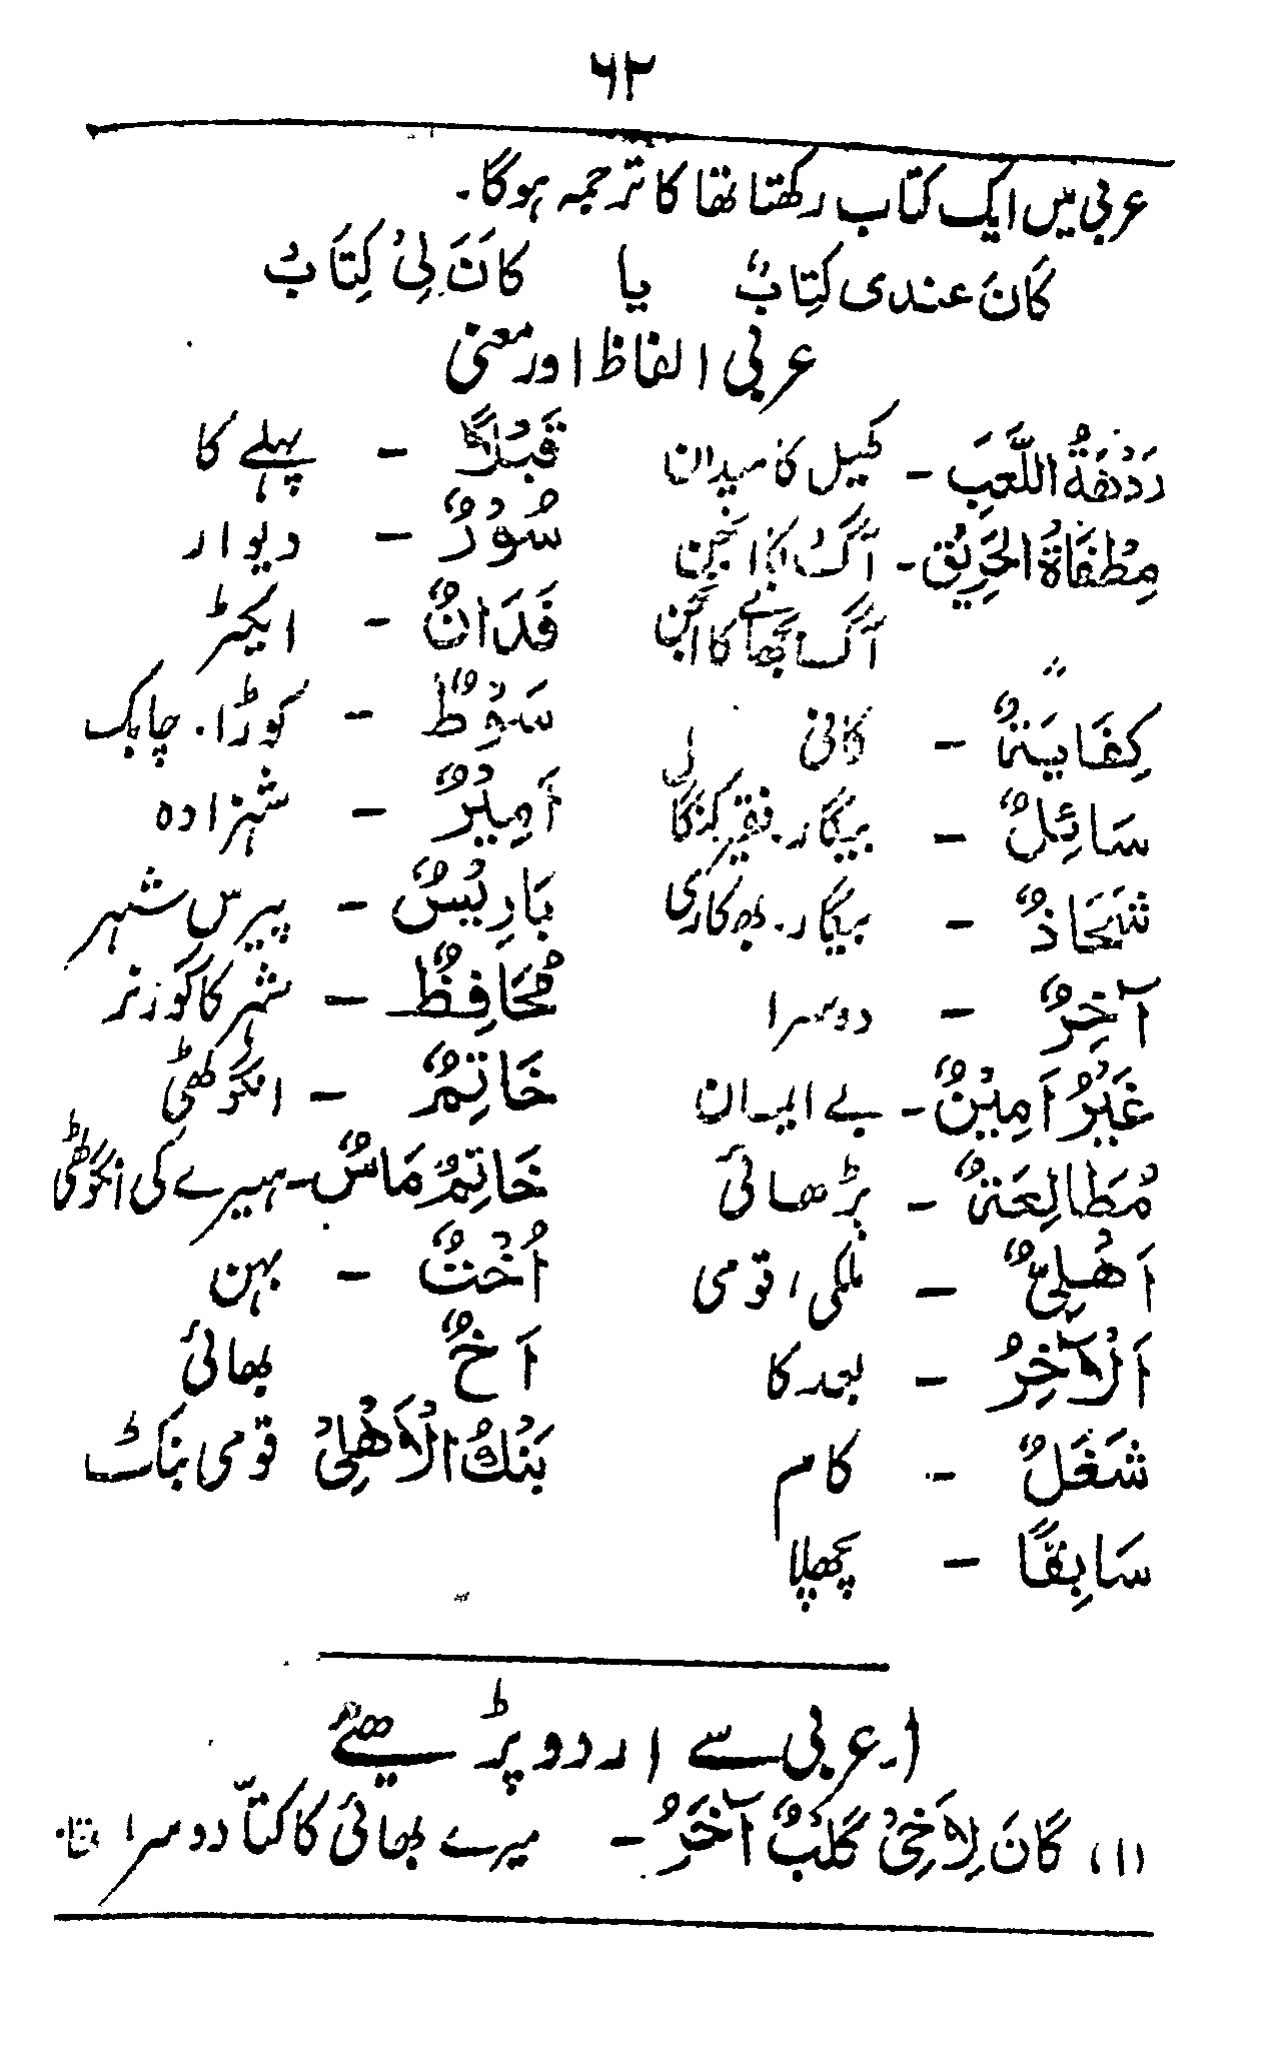 ۶۲
عربی میں ایک کتاب رکھتا تھا کا ترجمہ ہوگا۔
كَانَ عندی كِتابٌ یا كَانَ لِیْ كِتَابُ
عربی الفاظ اور معنی
اللَّعِبَ - کھیل کا میدان
مِطْفَاةُ الحَرِيْق - آگ کا انجن
آگ بجھانے کا انجن
كِفَايَةٌ - کافی
سَائِلٌ - بیگار۔ فقیر
شَحَاذٌ - بیگار۔ بھکاری
آخِرٌ - دوسرا
غَيْرُ اَمِيْنٌ - بے ایمان
مُطَالِعَةٌ - پڑھائی
اَهْلِیٌّ - ملکی، قومی
اَلْآخِرُ - بعد کا
شَغَلٌ - کام
سَابِقًا - پچھلا
قَبْلاً - پہلے کا
سُوْرٌ - دیوار
فَدَانٌ - ایکڑ
سَوْطٌ - کوڑا۔ چابک
اَمِيْرٌ - شہزادہ
بَارِيْسٌ - پیرس شہر
مُحَافِظٌ - شہر کا گورنر
خَاتِمٌ - انگوٹھی
خَاتِمٌ مَاسٌ - ہیرے کی انگوٹھی
اُخْتٌ - بہن
اَخٌ بھائی
بَنْكُ الْاَهْلِیْ قومی بنک
۱۔ عربی سے اردو پڑھئے
(۱) كَانَ لِاَخِیْ كَلْبٌ آخَرُ - میرے بھائی کا کتّا دوسرا تھا۔